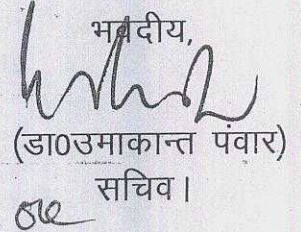 भवदीय,
(डा0उमाकान्त पंवार)
सचिव।